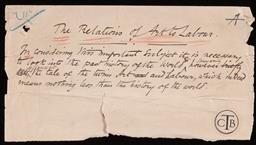 A
The Relations of Art to Labour.
In considering this important subject it is necessary
to look into the past history of the World, however briefly
the tale of the twins Art and Labour, which indeed
means nothing less than the history of the world.
CJB